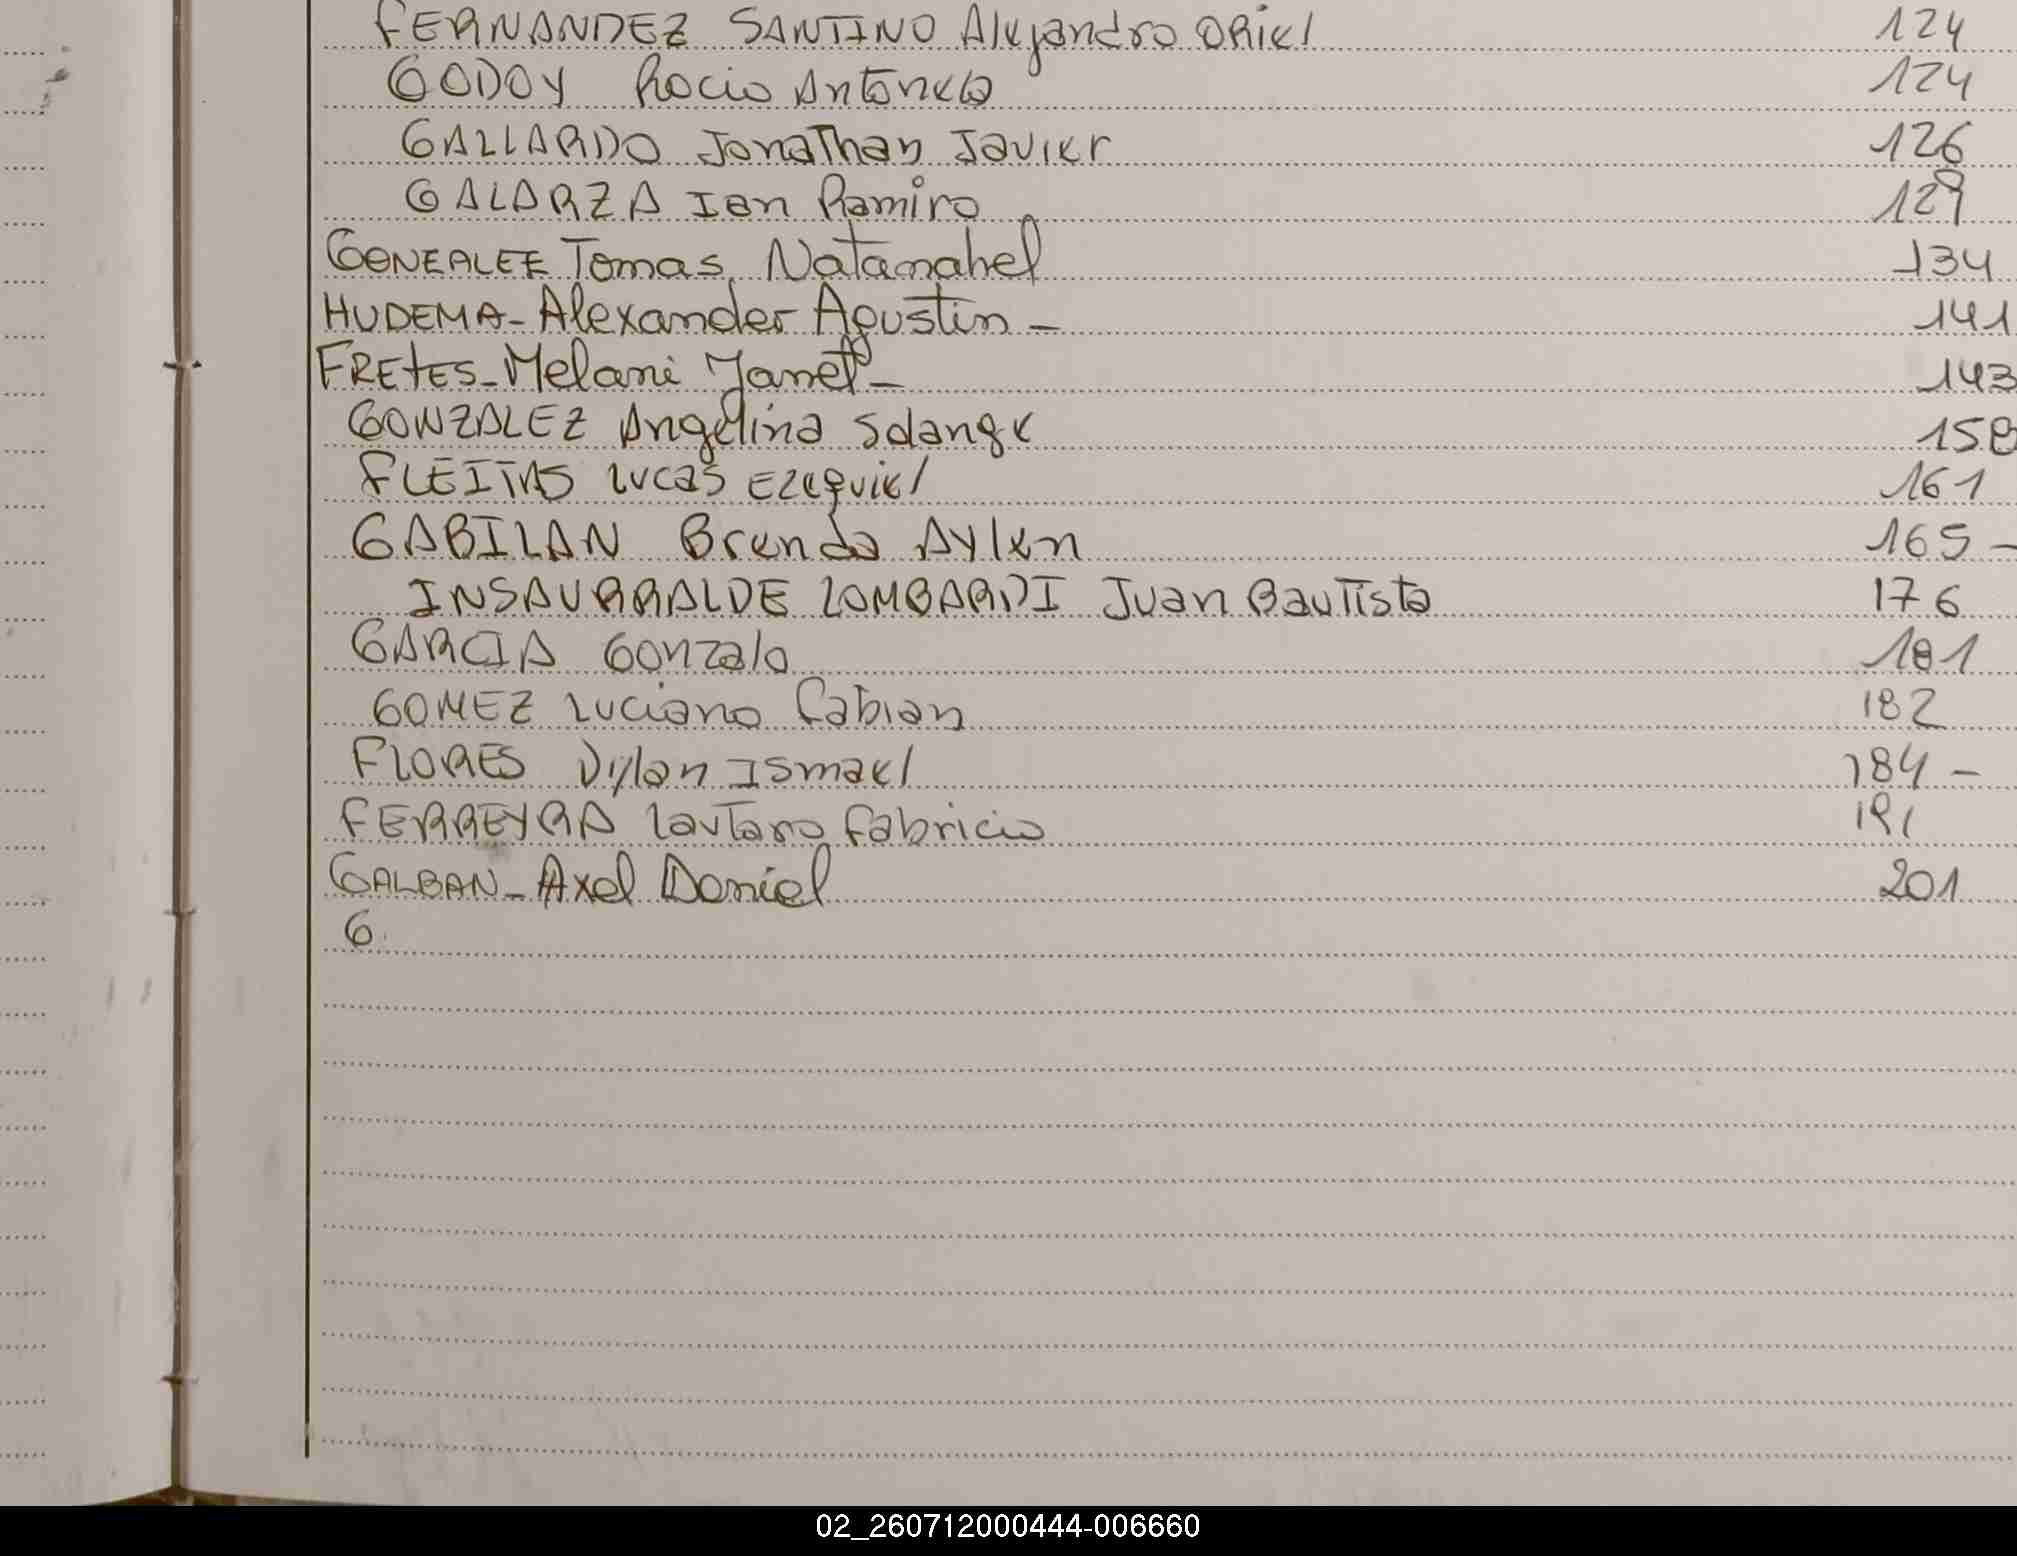 FERNANDEZ SANTINO Alejandro ORiel 124
GODOY Rocio Antonela 124
GALLARDO Jonathan Javier 126
GALARZA Ian Ramiro 129
GONEALEE Tomas Natanahel 134
HUDEMA - Alexander Agustin - 141
FREtES - Melani Janet - 143
GONZALEZ Angelina Solange 158
FLEITAS Lucas Ezequiel 161
GABILAN Brenda Aylen 165 -
INSAURRALDE LOMBARDI Juan Bautista 176
GARCIA Gonzalo 181
GOMEZ Luciano Fabian 182
FLORES Dylan Ismael 184 -
FERREYRA Lautaro Fabricio 191
GALBAN - Axel Daniel 201
G
02_260712000444-006660